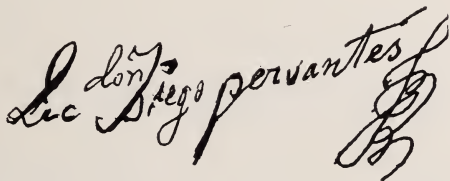 Lic don Diego pervantes